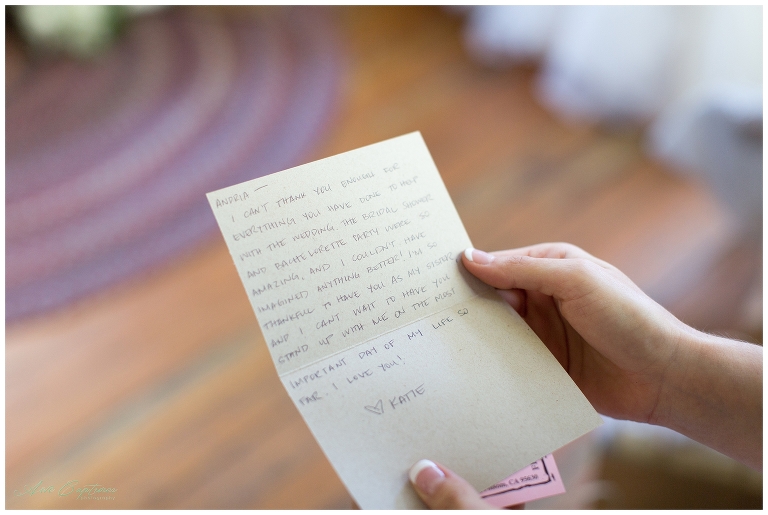 ANDRIA —
I CAN'T THANK YOU ENOUGH FOR
EVERYTHING YOU HAVE DONE TO HELP
WITH THE WEDDING. THE BRIDAL SHOWER
AND BACHELORETTE PARTY WERE SO
AMAZING, AND I COULDN'T HAVE
IMAGINED ANYTHING BETTER! I'M SO
THANKFUL TO HAVE YOU AS MY SISTER
AND I CAN'T WAIT TO HAVE YOU
STAND UP WITH ME ON THE MOST
IMPORTANT DAY OF MY LIFE SO
FAR. I LOVE YOU!
♡ KATIE
CA